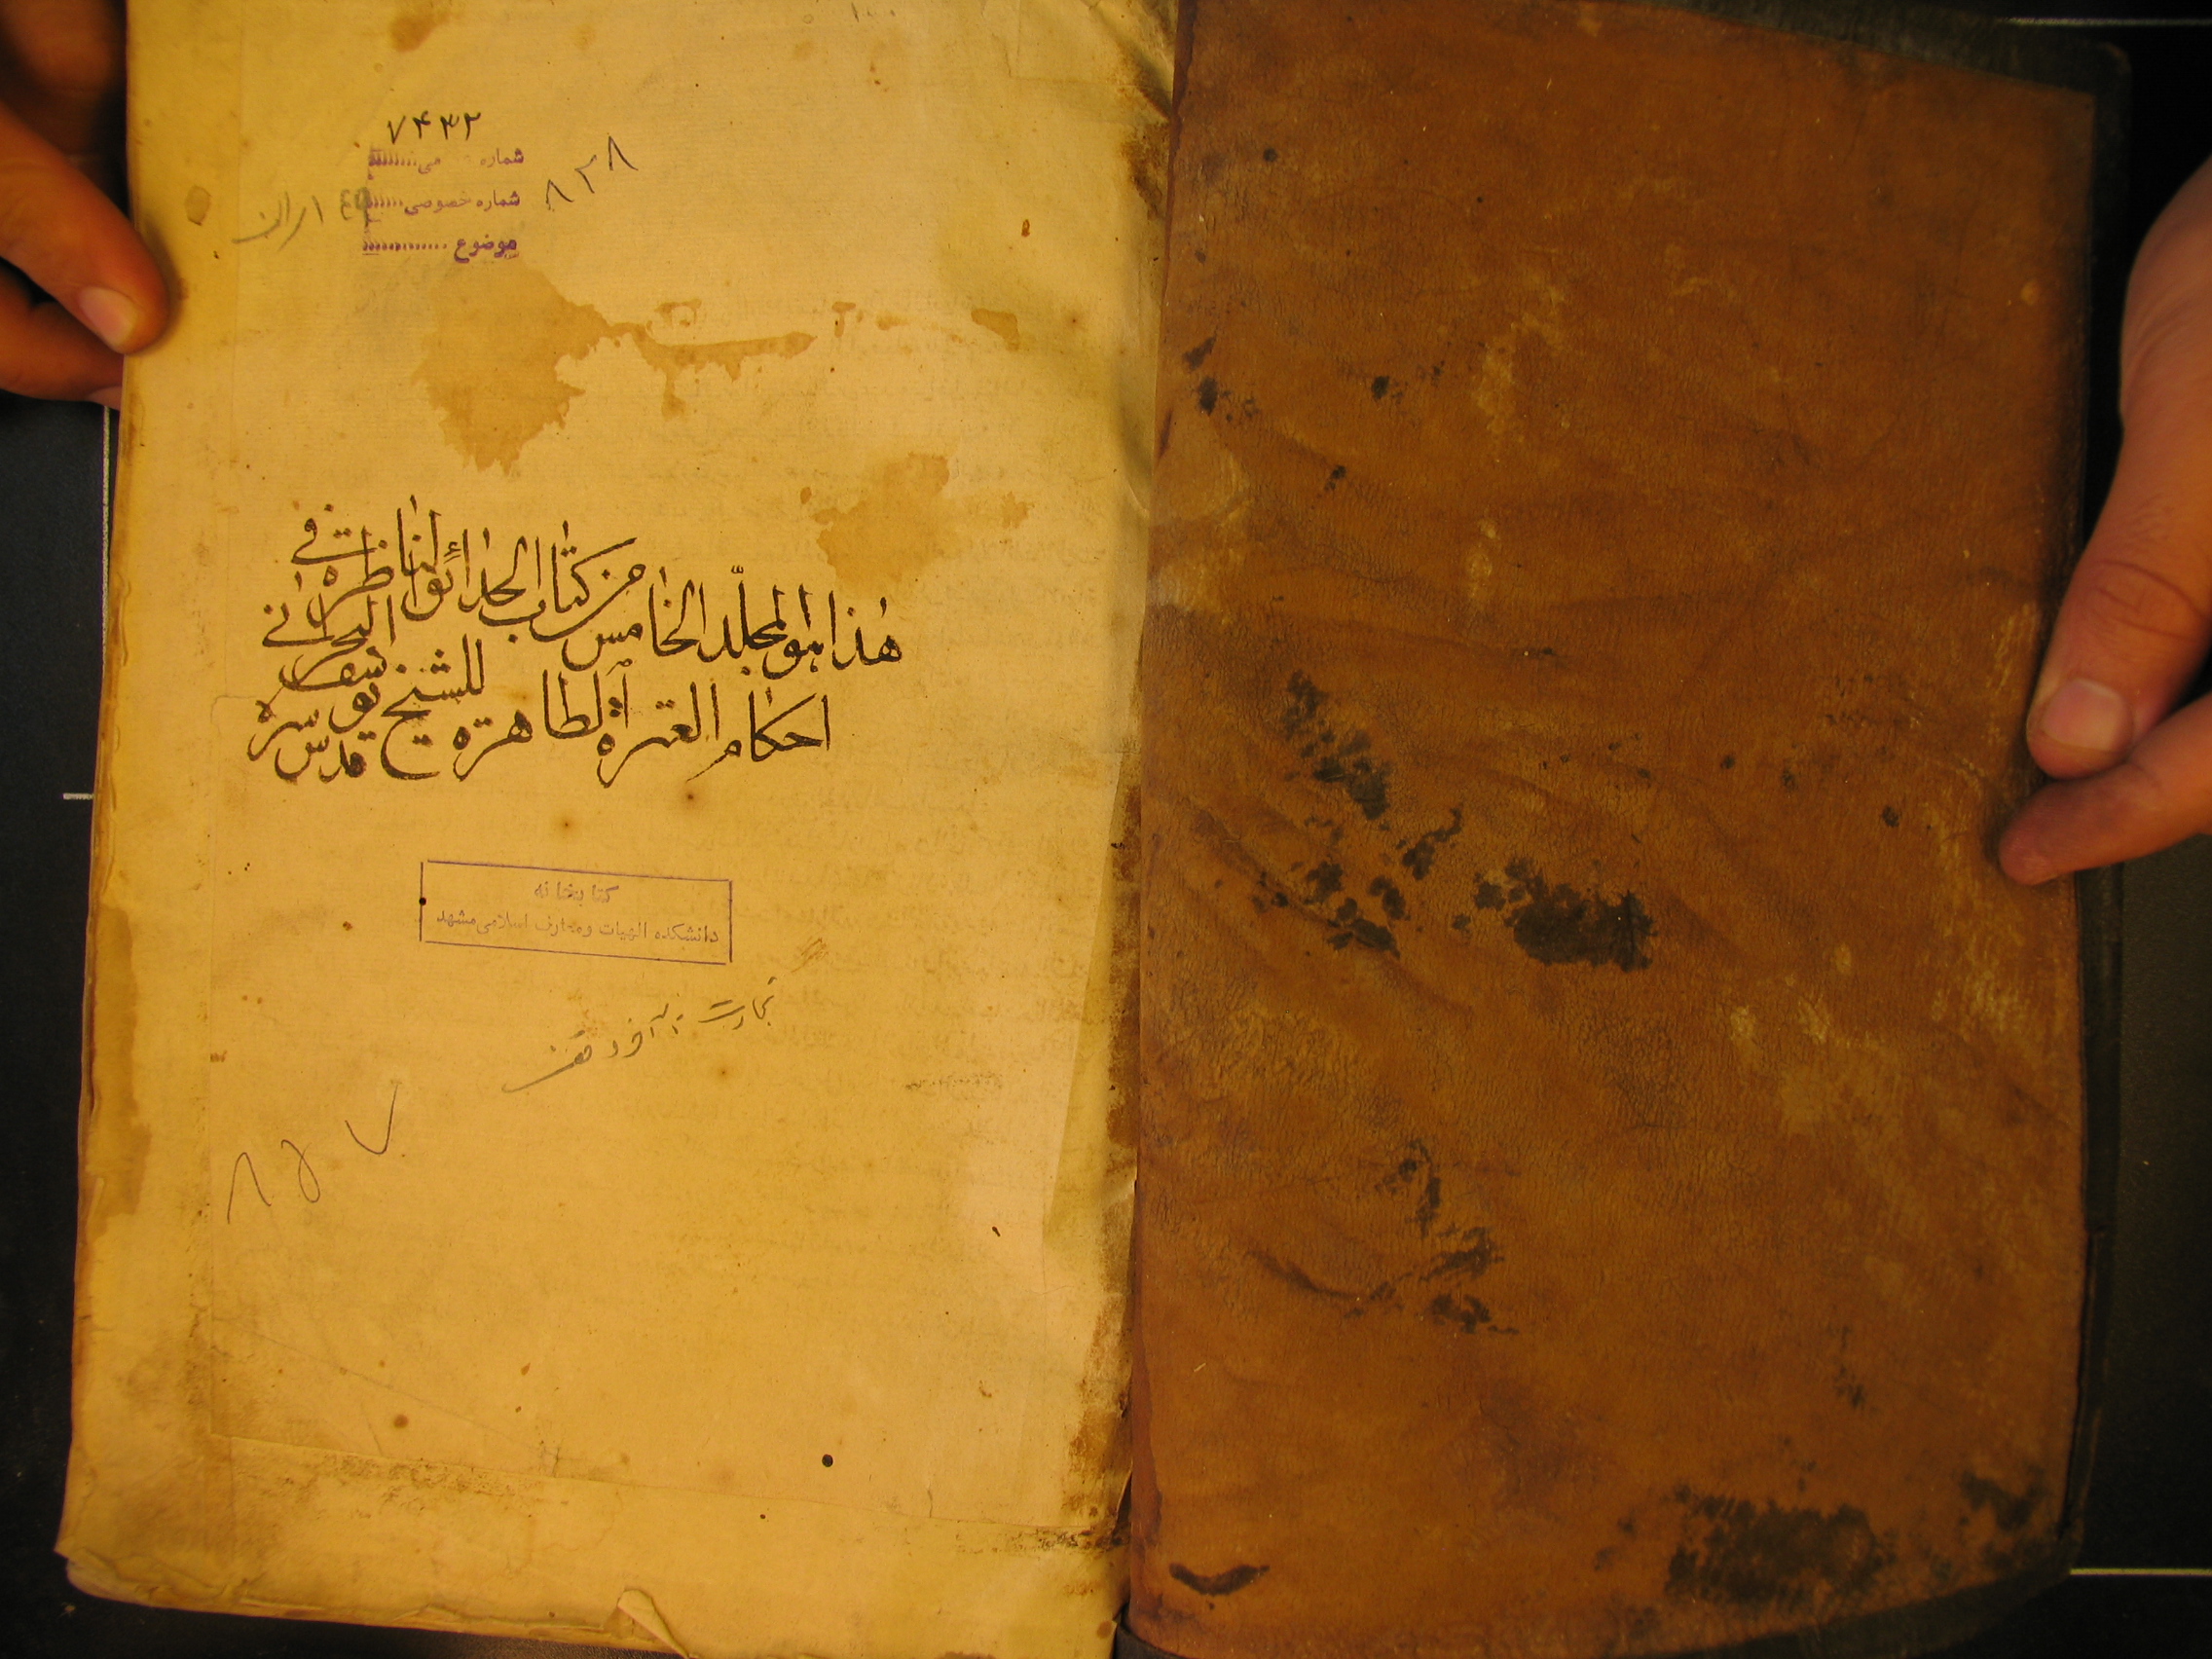 ۷۴۳۲
شماره
شماره خصوصی
۸۲۸
موضوع
هذا هو المجلّد الخامس من كتاب الحدائق الناظرة في
احكام العترة الطاهرة للشيخ يوسف البحراني
قدس سره
كتابخانه
دانشکده الهیات ومعارف اسلامی مشهد
۸۵۷